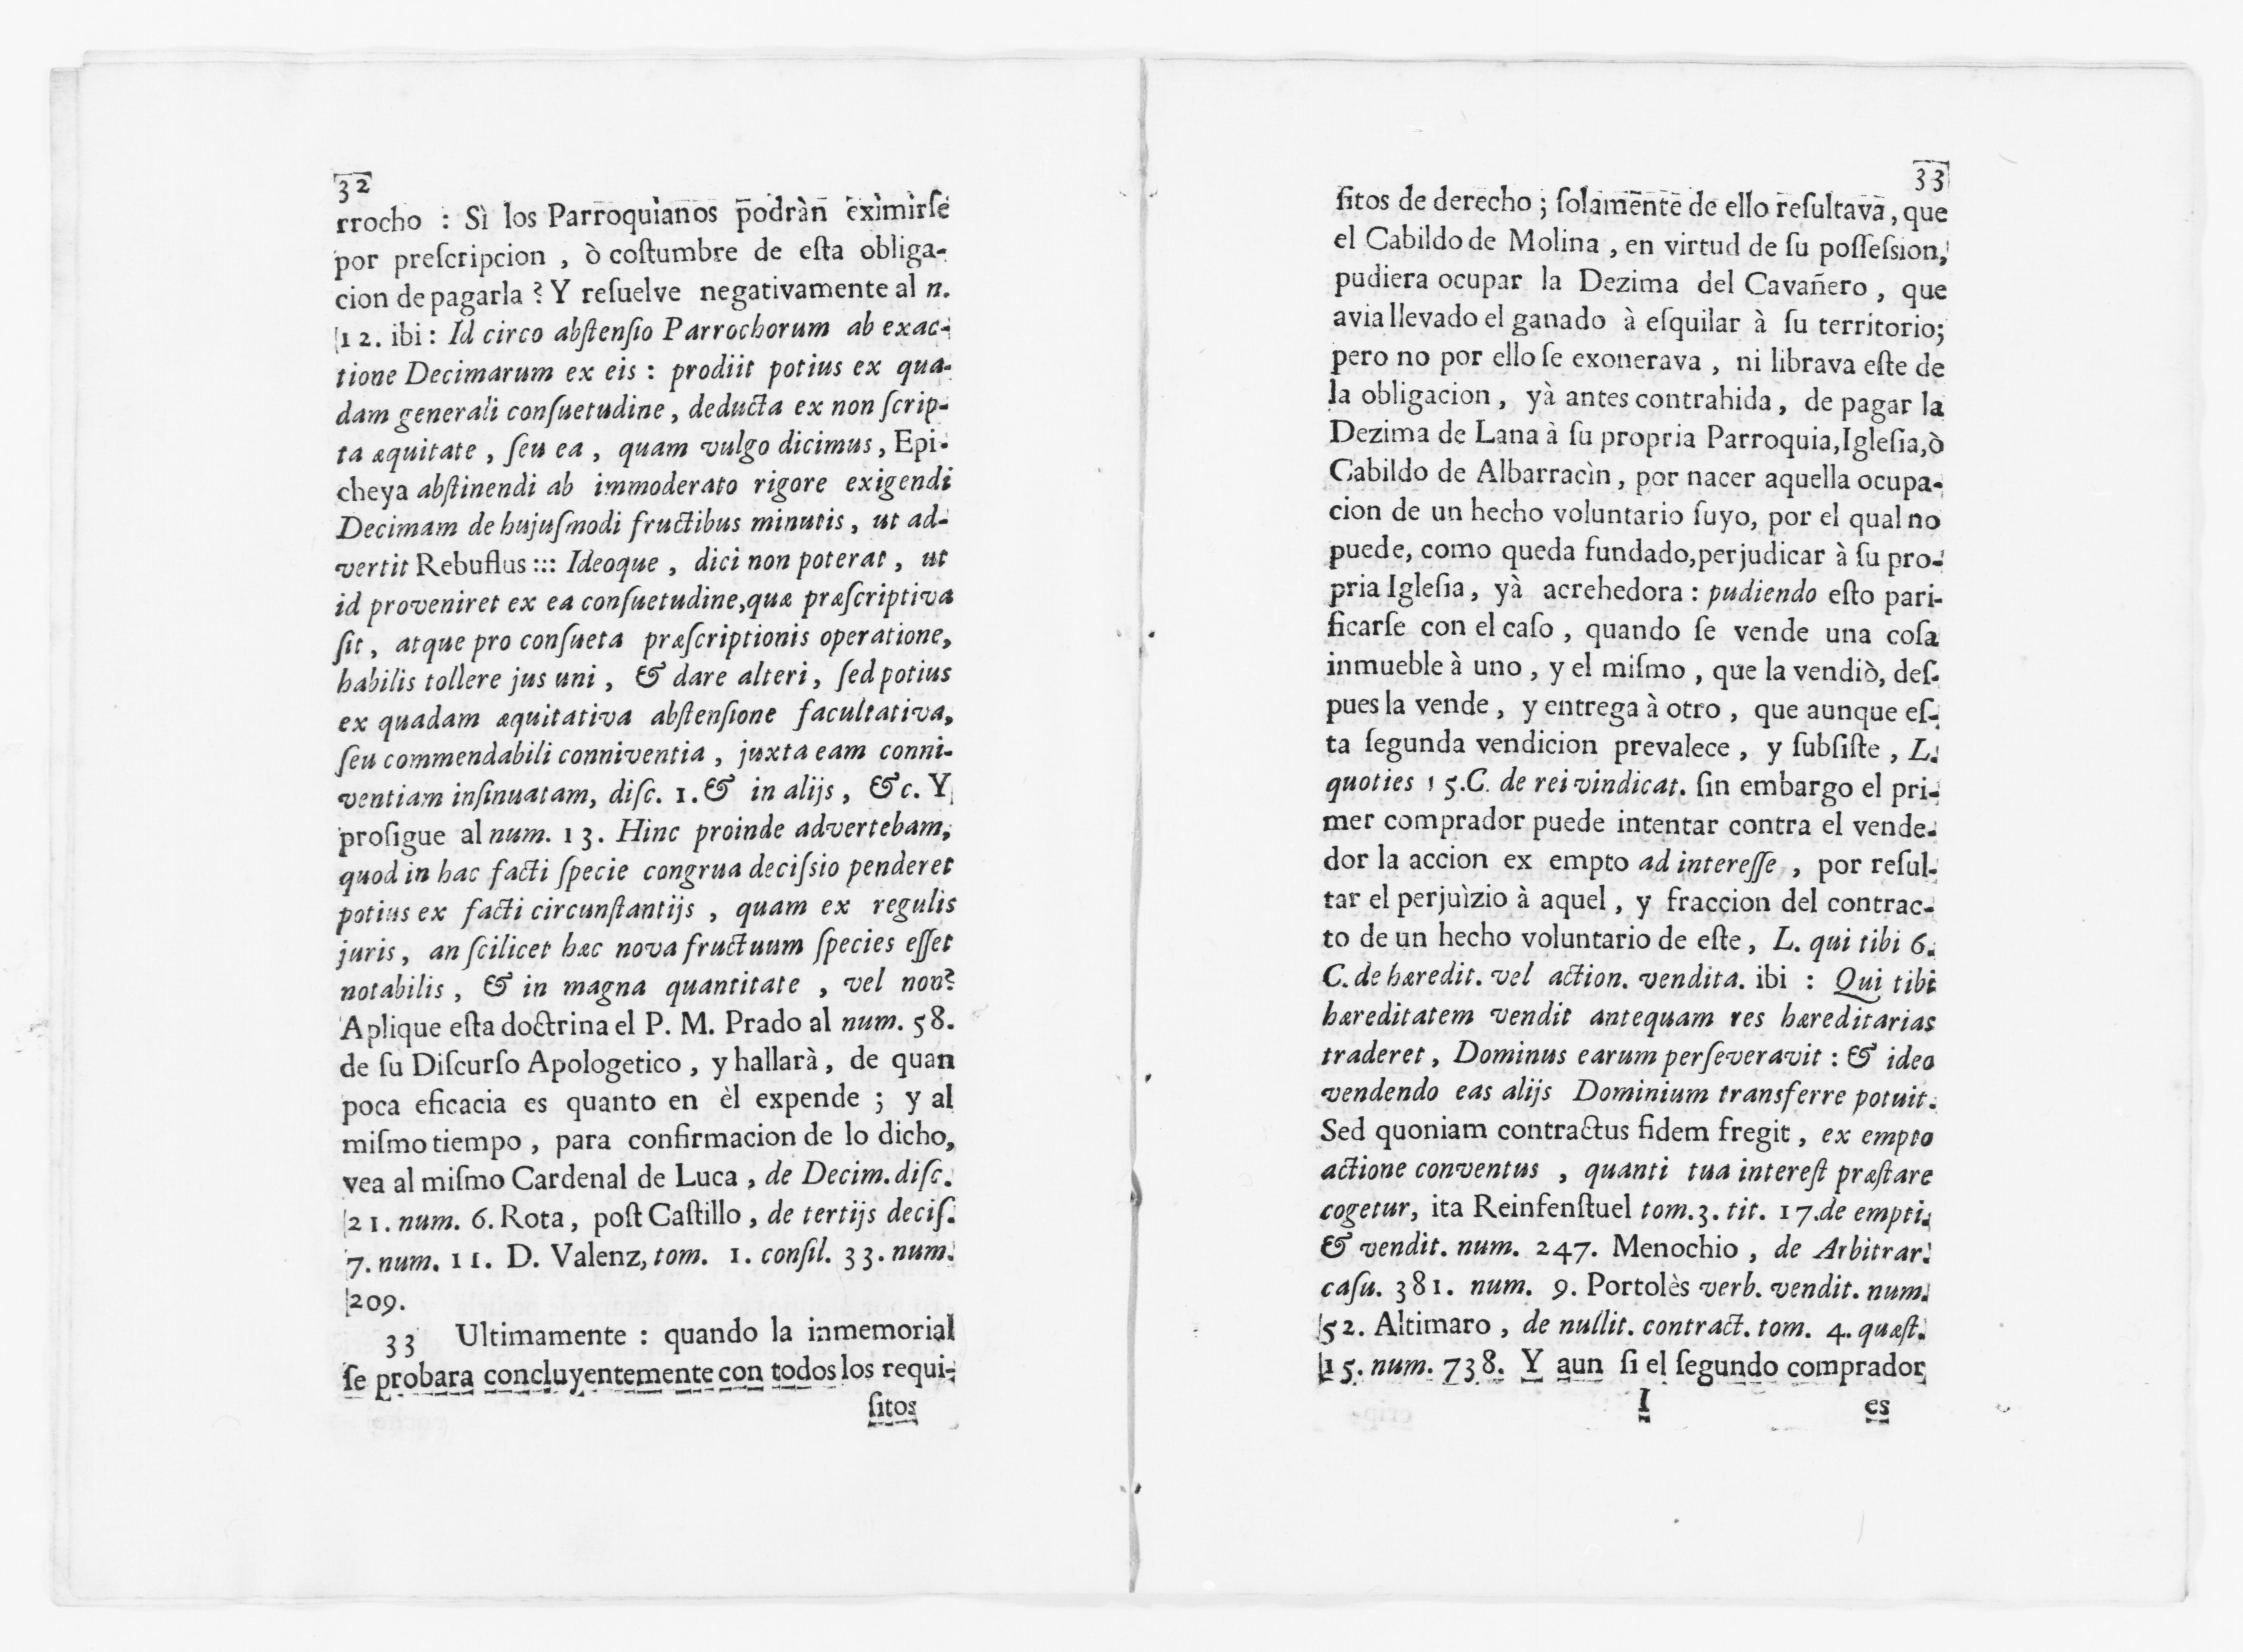 32
rrocho : Sì los Parroquianos podràn eximirſe
por preſcripcion , ò coſtumbre de eſta obliga-
cion de pagarla ? Y reſuelve negativamente al n.
12. ibi : Id circo abſtenſio Parrochorum ab exac-
tione Decimarum ex eis : prodiit potius ex qua-
dam generali conſuetudine , deducta ex non ſcrip-
ta æquitate , ſeu ea , quam vulgo dicimus , Epi-
cheya abſtinendi ab immoderato rigore exigendi
Decimam de hujuſmodi fructibus minutis , ut ad-
vertit Rebuflus ::: Ideoque , dici non poterat , ut
id proveniret ex ea conſuetudine,quæ præſcriptiva
ſit , atque pro conſueta præſcriptionis operatione,
habilis tollere jus uni , & dare alteri , ſed potius
ex quadam æquitativa abſtenſione facultativa,
ſeu commendabili conniventia , juxta eam conni-
ventiam inſinuatam, diſc. 1. & in alijs , &c. Y
proſigue al num. 13. Hinc proinde advertebam,
quod in hac facti ſpecie congrua deciſsio penderet
potius ex facti circunſtantijs , quam ex regulis
juris , an ſcilicet hæc nova fructuum ſpecies eſſet
notabilis , & in magna quantitate , vel non?
Aplique eſta doctrina el P. M. Prado al num. 58.
de ſu Diſcurſo Apologetico , y hallarà , de quan
poca eficacia es quanto en èl expende ; y al
miſmo tiempo , para confirmacion de lo dicho,
vea al miſmo Cardenal de Luca , de Decim. diſc.
21. num. 6. Rota , poſt Caſtillo , de tertijs deciſ.
7. num. 11. D. Valenz, tom. 1. conſil. 33. num.
209.
33 Ultimamente : quando la inmemorial
ſe probara concluyentemente con todos los requi-
ſitos
33
ſitos de derecho ; ſolamente de ello reſultava , que
el Cabildo de Molina , en virtud de ſu poſſeſsion,
pudiera ocupar la Dezima del Cavañero , que
avia llevado el ganado à eſquilar à ſu territorio;
pero no por ello ſe exonerava , ni librava eſte de
la obligacion , yà antes contrahida , de pagar la
Dezima de Lana à ſu propria Parroquia,Igleſia,ò
Cabildo de Albarracìn , por nacer aquella ocupa-
cion de un hecho voluntario ſuyo, por el qual no
puede, como queda fundado,perjudicar à ſu pro-
pria Igleſia , yà acrehedora : pudiendo eſto pari-
ficarſe con el caſo , quando ſe vende una coſa
inmueble à uno , y el miſmo , que la vendiò, deſ-
pues la vende , y entrega à otro , que aunque eſ-
ta ſegunda vendicion prevalece , y ſubſiſte , L.
quoties 15.C. de rei vindicat. ſin embargo el pri-
mer comprador puede intentar contra el vende-
dor la accion ex empto ad intereſſe , por reſul-
tar el perjuìzio à aquel , y fraccion del contrac-
to de un hecho voluntario de eſte , L. qui tibi 6.
C. de hæredit. vel action. vendita. ibi : Qui tibi
hæreditatem vendit antequam res hæreditarias
traderet , Dominus earum perſeveravit : & ideo
vendendo eas alijs Dominium transferre potuit.
Sed quoniam contractus fidem fregit , ex empto
actione conventus , quanti tua intereſt præſtare
cogetur, ita Reinfenſtuel tom.3. tit. 17.de empti.
& vendit. num. 247. Menochio , de Arbitrar.
caſu. 381. num. 9. Portolès verb. vendit. num.
52. Altimaro , de nullit. contract. tom. 4. quæſt.
15. num. 738. Y aun ſi el ſegundo comprador
I es